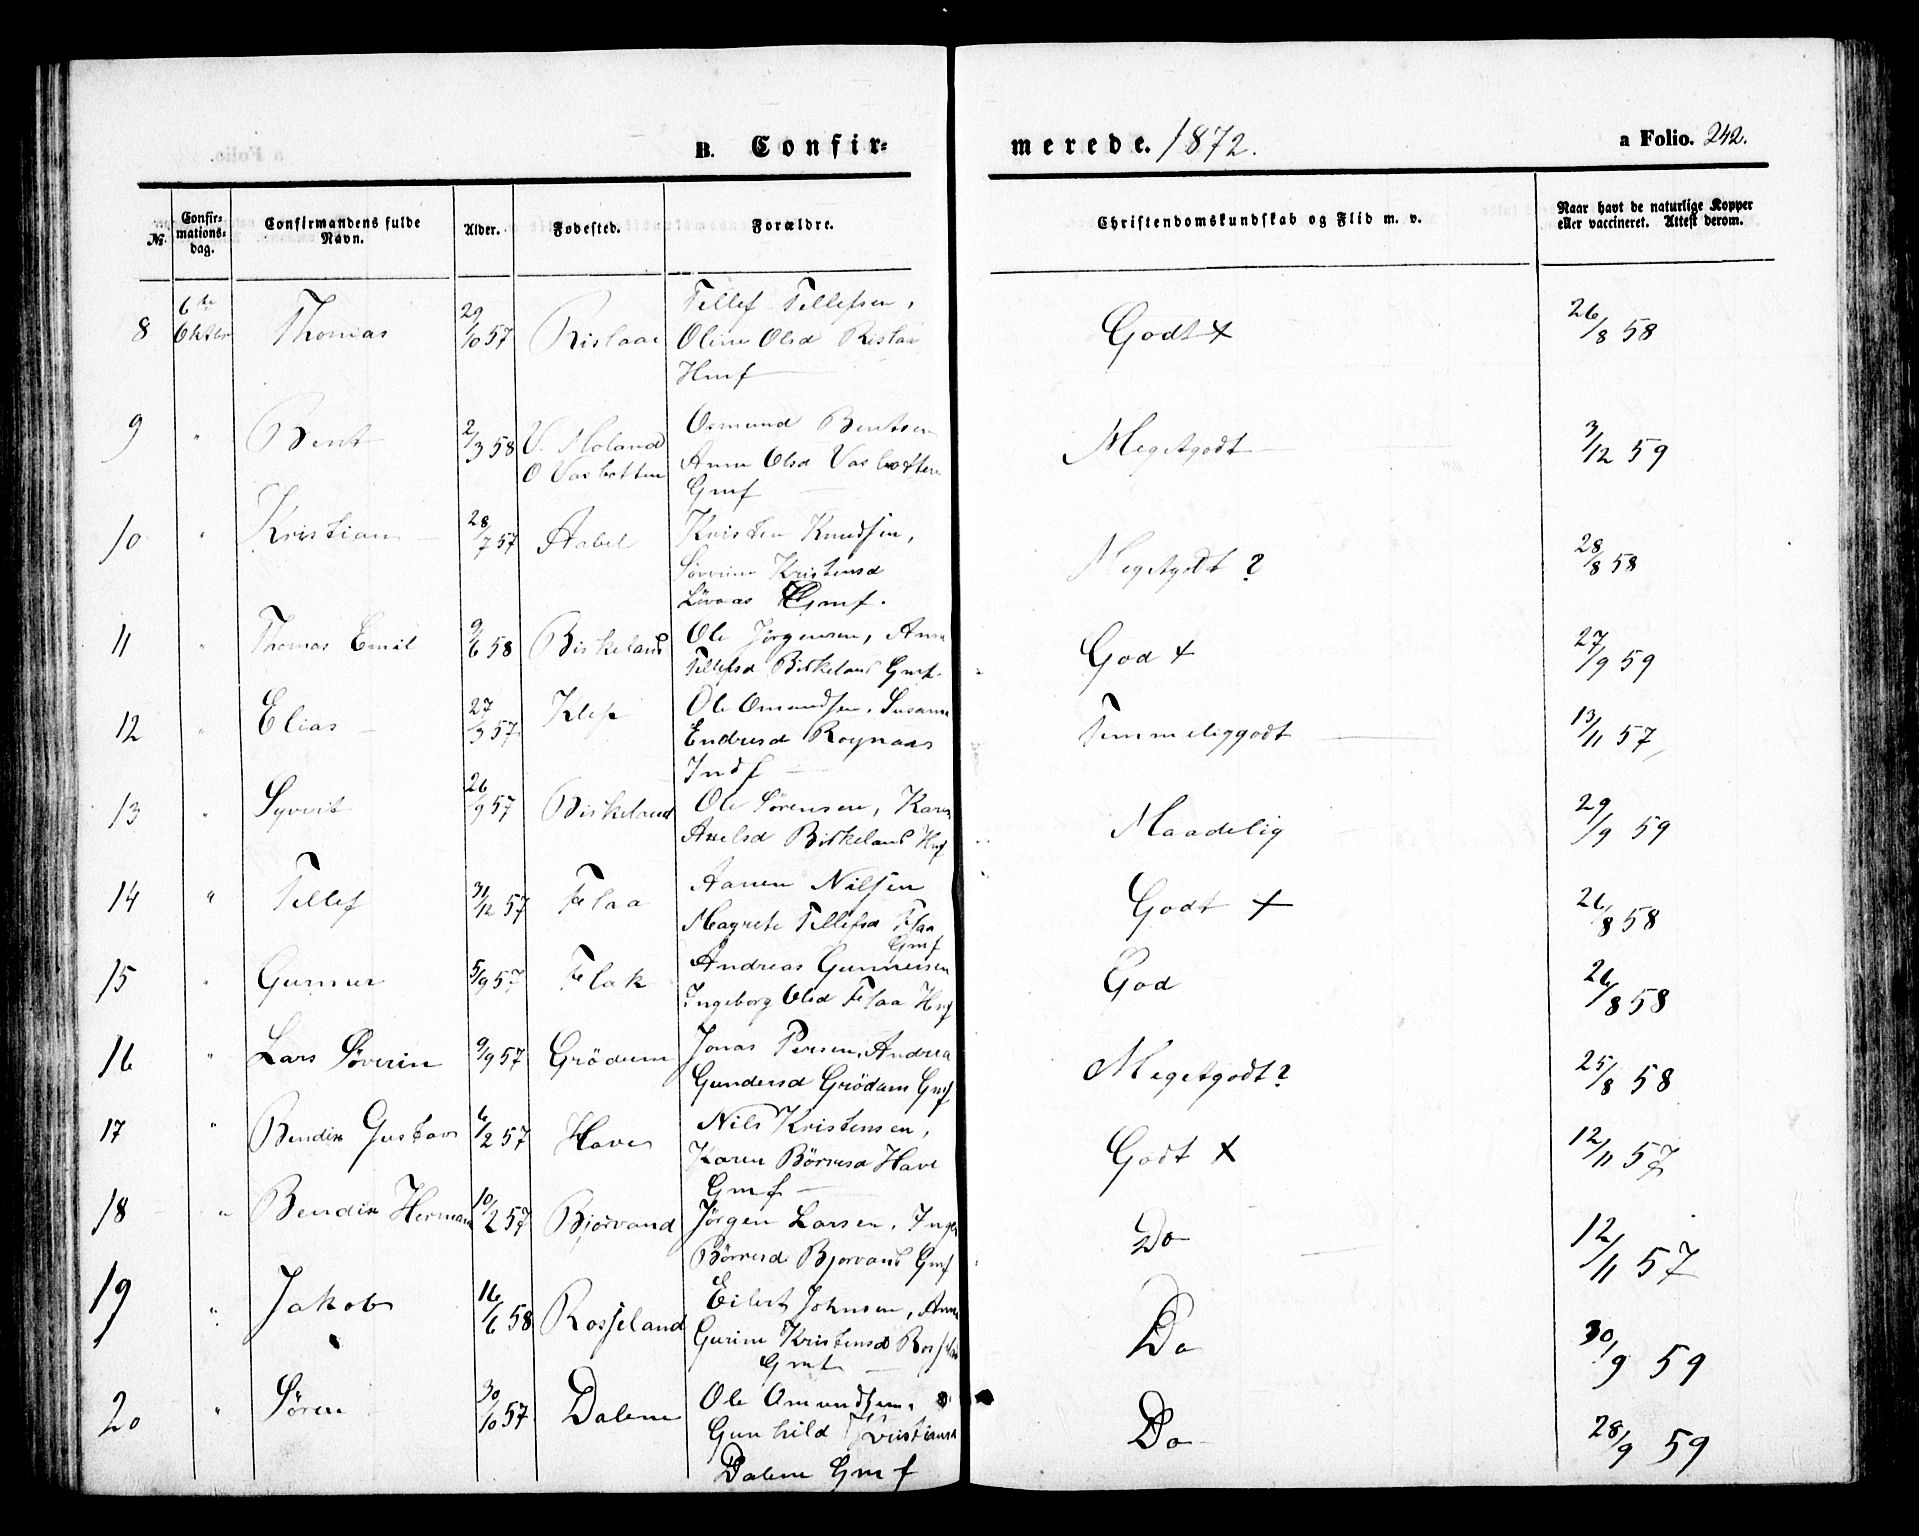 B. Confir-
merede. 1872.
a Folio. 242.
No.
Confir-
mations-
dag.
Confirmandens fulde
Navn.
Alder.
Fødested.
Forældre.
Christendomskundskab og Flid m. v.
Naar havt de naturlige Kopper
eller vaccineret. Attest derom.
8 6te Oktbr Thomas 29/10 57 Rislaae Tellef Tellefsen,
Oline Olsd Rislaa
Hmf
Godt + 26/8 58
9 " Bent 2/3 58 V. Moland
O Vasbotten
Osmund Bentsen
Anne Olsd Vasbotten
Gmf
Megetgodt 3/12 59
10 " Kristian 28/7 57 Aabel Kristen Knudsen,
Søverine Kristensd
Løvaas Gmf.
Megetgodt ? 28/8 58
11 " Thomas Emil 9/6 58 Birkeland Ole Jørgensen, Anne
Tellefsd Birkeland Gmf.
God + 27/9 59
12 " Elias 27/3 57 Klep Ole Omundsen, Susanne
Endresd Roynaas
Indf
Temmeliggodt 13/11 57
13 " Syvert 26/9 57 Birkeland Ole Sørensen, Karen
Axelsd Birkeland Hmf
Maadelig 29/9 59
14 " Tellef 31/12 57 Flaa Aanen Nilsen
Magrete Tellefsd Flaa
Gmf
Godt + 26/8 58
15 " Gunner 5/9 57 Flak Andreas Gunnersen
Ingeborg Olsd Flaa Hmf
God 26/8 58
16 " Lars Søverin 9/9 57 Grødum Jonas Persen, Andrea
Gundersd Grødum Gmf
Megetgodt? 25/8 58
17 " Bendix Gustav 6/2 57 Have Nils Kristensen,
Karen Børresd Have
Gmf
Godt + 12/11 57
18 " Bendix Herman 10/2 57 Bjorvand Jørgen Larsen, Inger
Børresd Bjorvand Gmf
Do 12/11 57
19 " Jakob 16/6 58 Rosseland Eilert Johnsen, Anne
Gurine Kristensd
Gmf
Do 30/9 59
20 " Søren 30/10 57 Dalene Ole Omundsen,
Gunhild
Dalene Gmf
Do 28/9 59